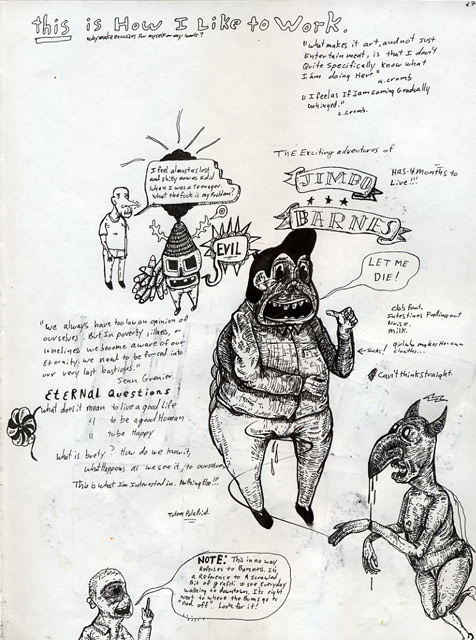 this is How I Like to Work.
why make excuses for myself or my work?
67
"what makes it art, and not just
Entertainment, is that I don't
Quite Specifically know what
I am doing Her"
R. cromb
"I feel as If I am coming Gradually
unhinged."
c. crumb.
The Exciting adventures of
JIMBO
BARNES
Has 4 months to
Live!!!
I feel almost as lost
and shitty now as I did
when I was a Teenager.
What the fuck is my Problem?
EVIL
LET ME
DIE!
club foot,
Intestines Falling out
Noise.
milk.
girl who makes Her own
cloathes...
Sucks!
Can't think straight.
"we always have too low an opinion of
ourselves. But In Poverty, illness, or
lonelines we become aware of our
Eternity. we need to be forced into
our very last bastions."
Jean Grenier.
Eternal Questions
what does it mean to live a good life
" to be a good Human
" to be Happy
what is buety? How do we know it,
what Happens as we see it, to ourselves
This is what I'm Interested in. Nothing Else!!!
NOTE: This in no way
Referes to Barsness. Its
a Reference to A Scrawled
Bit of grafiti I see everyday
walking to downtown. Its right
next to where the Bums go to
"End off". Look for it!